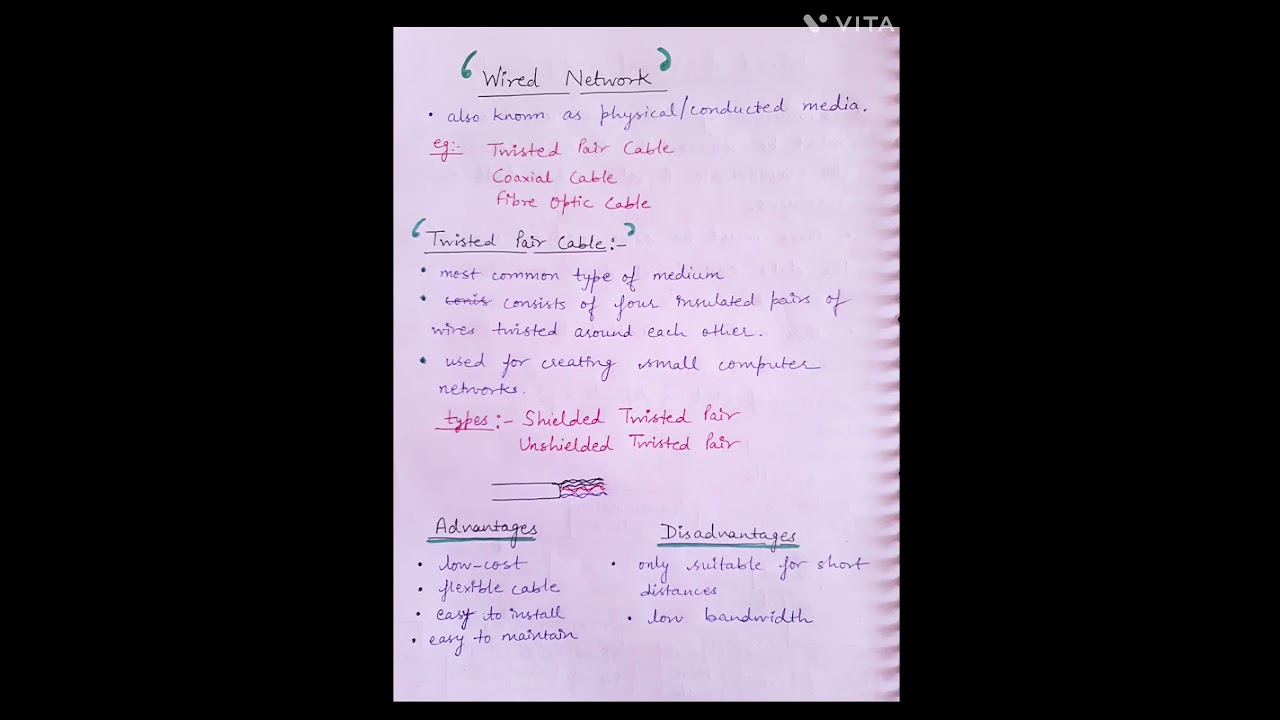 VITA
Wired Network
• also known as physical/conducted media.
eg:- Twisted Pair Cable
Coaxial Cable
Fibre Optic Cable
Twisted Pair Cable:-
• most common type of medium
• conis consists of four insulated pairs of
wires twisted around each other.
• used for creating small computer
networks.
types:- Shielded Twisted Pair
Unshielded Twisted Pair
Advantages
• low-cost
• flexible cable
• easy to install
• easy to maintain
Disadvantages
• only suitable for short
distances
• low bandwidth